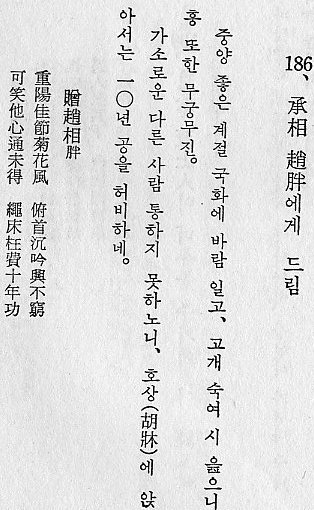 186、承相 趙胖에게 드림
중양 좋은 계절 국화에 바람 일고、고개 숙여 시 읊으니
흥 또한 무궁무진。
가소로운 다른 사람 통하지 못하노니、호상(胡牀)에 앉
아서는 一〇년 공을 허비하네。
贈趙相胖
重陽佳節菊花風 俯首沉吟興不窮
可笑他心通未得 繩床枉費十年功